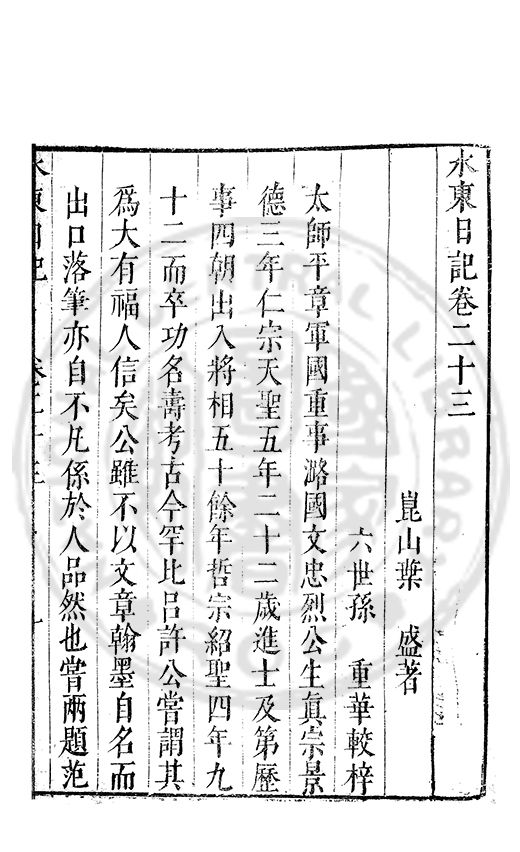 水東日記卷二十三
崑山葉　盛著
六世孫　重華較梓
太師平章軍國重事潞國文忠烈公生真宗景
德三年仁宗天聖五年二十二歲進士及第歷
事四朝出入將相五十餘年哲宗紹聖四年九
十二而卒功名壽考古今罕比呂許公嘗謂其
爲大有福人信矣公雖不以文章翰墨自名而
出口落筆亦自不凡係於人品然也嘗兩題范
水東日記　卷二十三　一